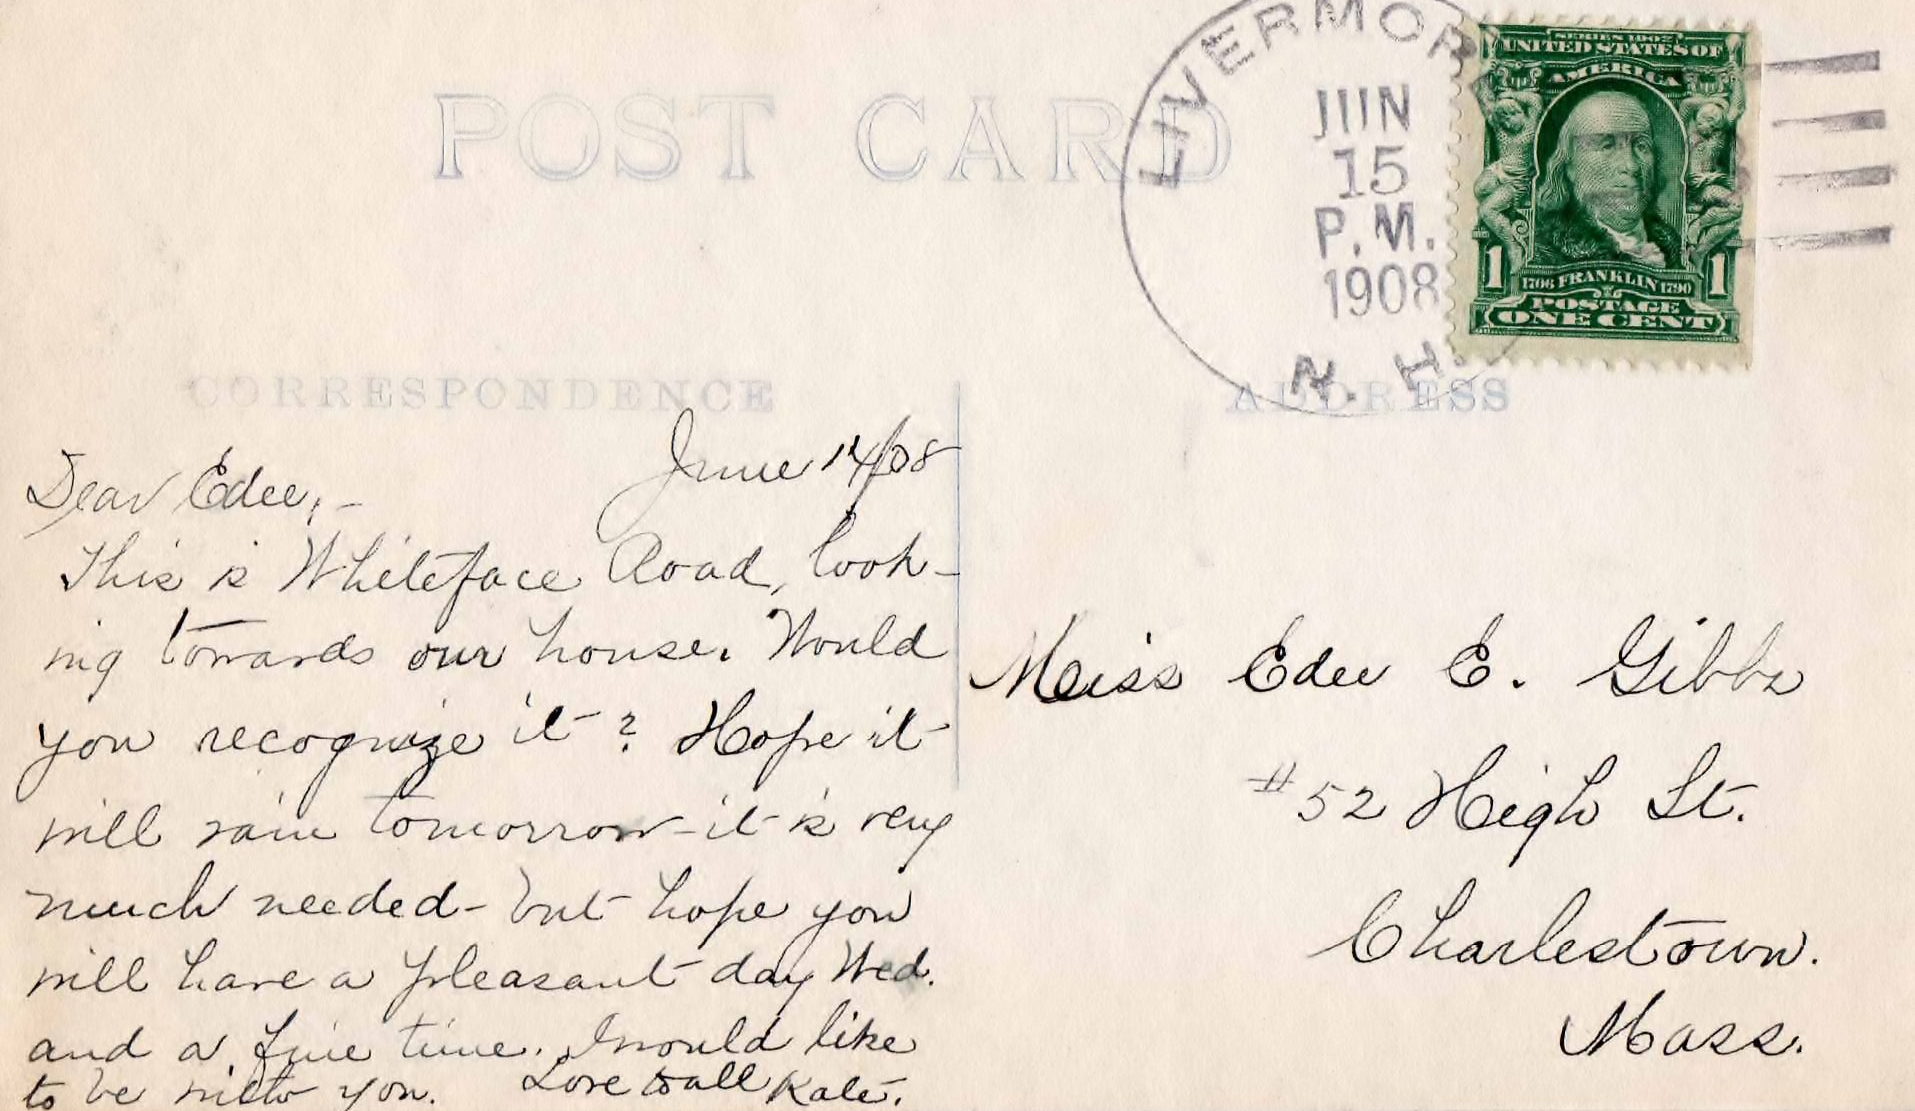 POST CARD
LIVERMOR
JUN
15
P.M.
1908
N. H.
SERIES 1902
UNITED STATES OF
AMERICA
1 1
1706 FRANKLIN 1790
POSTAGE
ONE CENT
CORRESPONDENCE
ADDRESS
June 14/08
Dear Edee,-
This is Whiteface Road, look-
ing towards our house. Would
you recognize it? Hope it
will rain tomorrow - it is very
much needed - but hope you
will have a pleasant day Wed.
and a fine time. I would like
to be with you. Love to all Kate.
Miss Edee E. Gibbs
#52 High St.
Charlestown.
Mass.